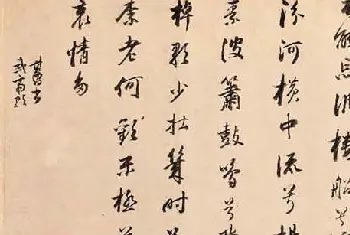 能忘汎樓船
汾河橫中流兮揚
素波簫鼓鳴兮發
棹歌少壯幾時
奈老何歡樂極兮
哀情多